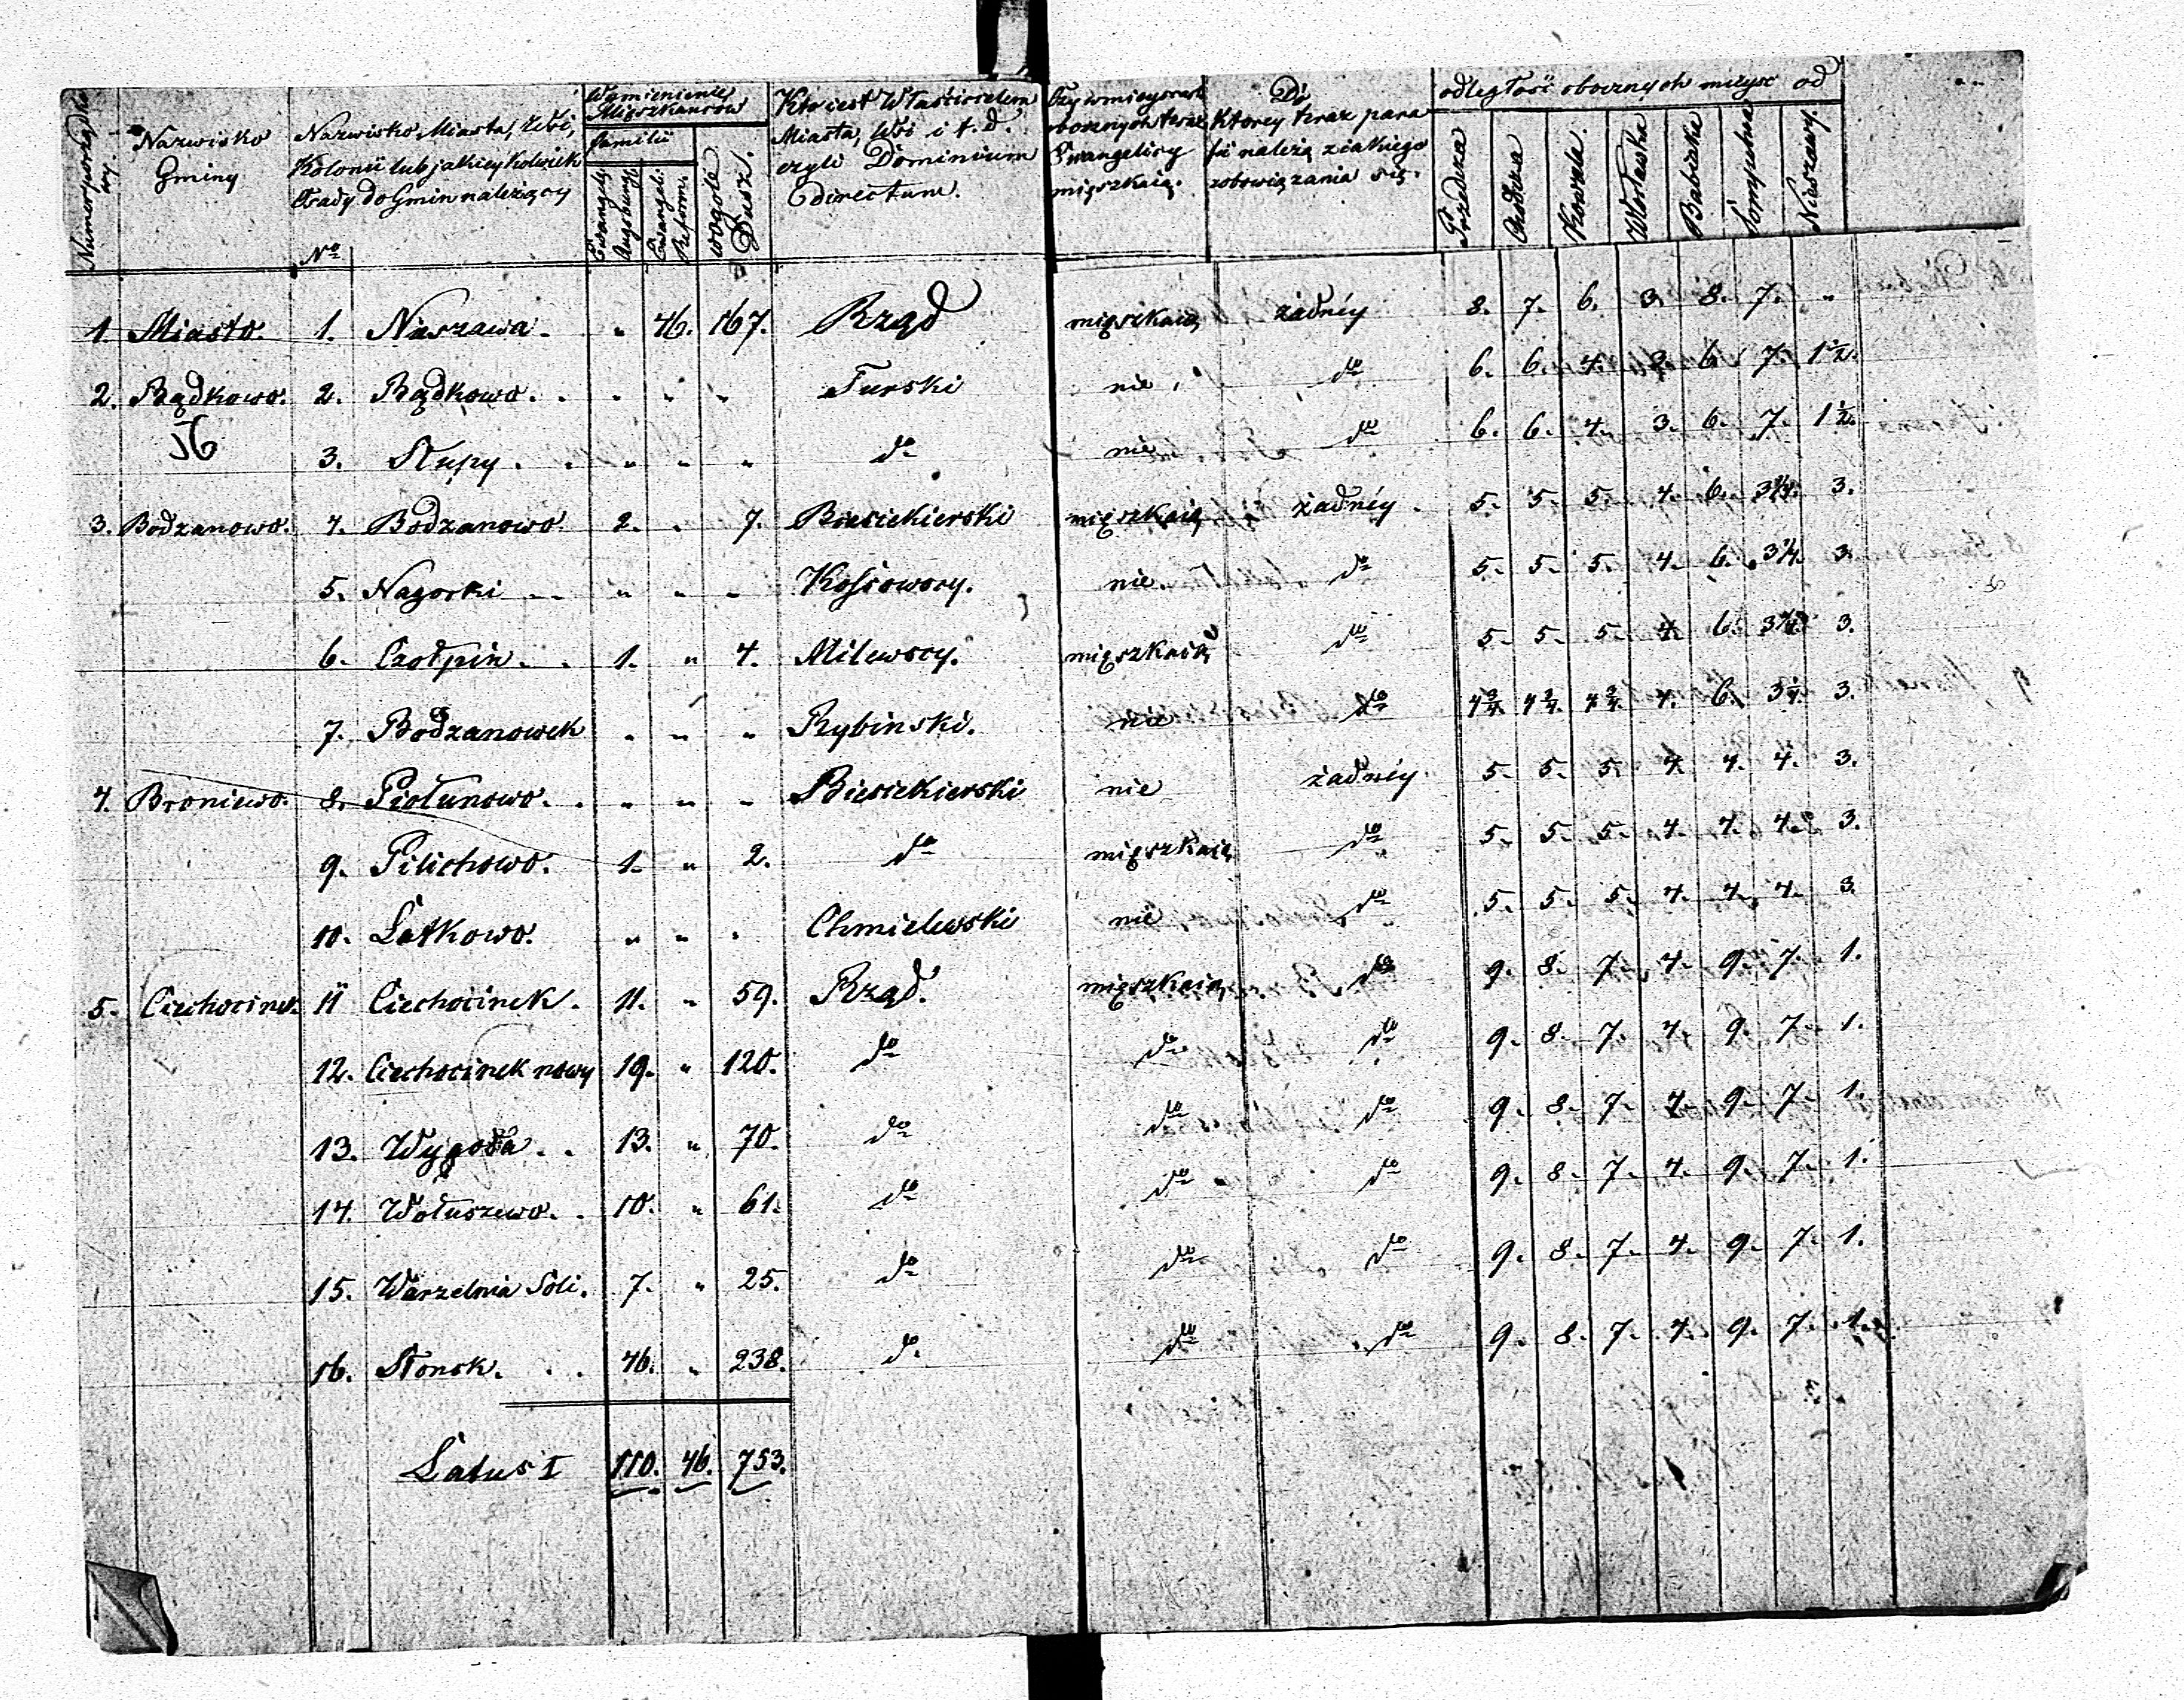 Numer porządkowy.
Nazwisko Gminy
Nazwisko Miasta, Wsi, Kolonii lub jakiey kolwiek Osady do Gmin należący
No
Wymienienie Mięszkańcow
familii
Ewangel: Augsburg:
Ewangel: Reform:
wogole Dusz.
Kto iest Właścicielem Miasta, Wsi i t. d. czyli Dominium directum.
Czy w mieyscach obocznych teraz Ewangelicy mięszkaią.
Do ktorey teraz parafii należą z iakiego zobowiązania się.
odległość obocznych mieysc od
Przedcza
Chodcza
Kowala.
Włocławka
Babiaka
Sompolna
Nieszawy.
1. Miasto. 1. Nieszawa. " 46. 167. Rząd mięszkaią żadnéy 8. 7. 6. 3. 8. 7. "
2. Bądkowo. 2. Bądkowo. . " " " Turski nie do 6. 6. 4. 3. 6. 7. 1½.
36
3. Słupy. . " " " do nie do 6. 6. 4. 3. 6. 7. 1½.
3. Bodzanowo. 4. Bodzanowo. 2. " 7. Biesiekierski mięszkaią żadnéy. 5. 5. 5. 4. 6. 3¼. 3.
5. Nagorki " " " Kossowscy. nie do 5. 5. 5. 4. 6. 3¼. 3.
6. Czołpin. . 1. " 4. Milewscy. mięszkaią do 5. 5. 5. 4. 6. 3¼. 3.
7. Bodzanowek " " " Rybinski. nie do 4¾. 4¾. 4¾. 4. 6. 3¼. 3.
4. Broniewo. 8. Piołunowo. . " " " Biesiekierski nie żadnéy. 5. 5. 5. 4. 4. 4. 3.
9. Pilichowo. 1. " 2. do mięszkaią do 5. 5. 5. 4. 4. 4. 3.
10. Latkowo. " " " Chmielewski nie do 5. 5. 5. 4. 4. 4. 3.
5. Ciechocinek. 11 Ciechocinek. 11. " 59. Rząd. mięszkaią do 9. 8. 7. 4. 9. 7. 1.
12. Ciechocinek nowy 19. " 120. do do do 9. 8. 7. 4. 9. 7. 1.
13. Wygoda. . 13. " 70. do do do 9. 8. 7. 4. 9. 7. 1.
14. Wołuszewo. . 10. " 61. do do do 9. 8. 7. 4. 9. 7. 1.
15. Warzelnia Soli. 7. " 25. do do do 9. 8. 7. 4. 9. 7. 1.
16. Słonsk. . . 46. " 238. do do do 9. 8. 7. 4. 9. 7. 1.
Latus I 110. 46. 753.